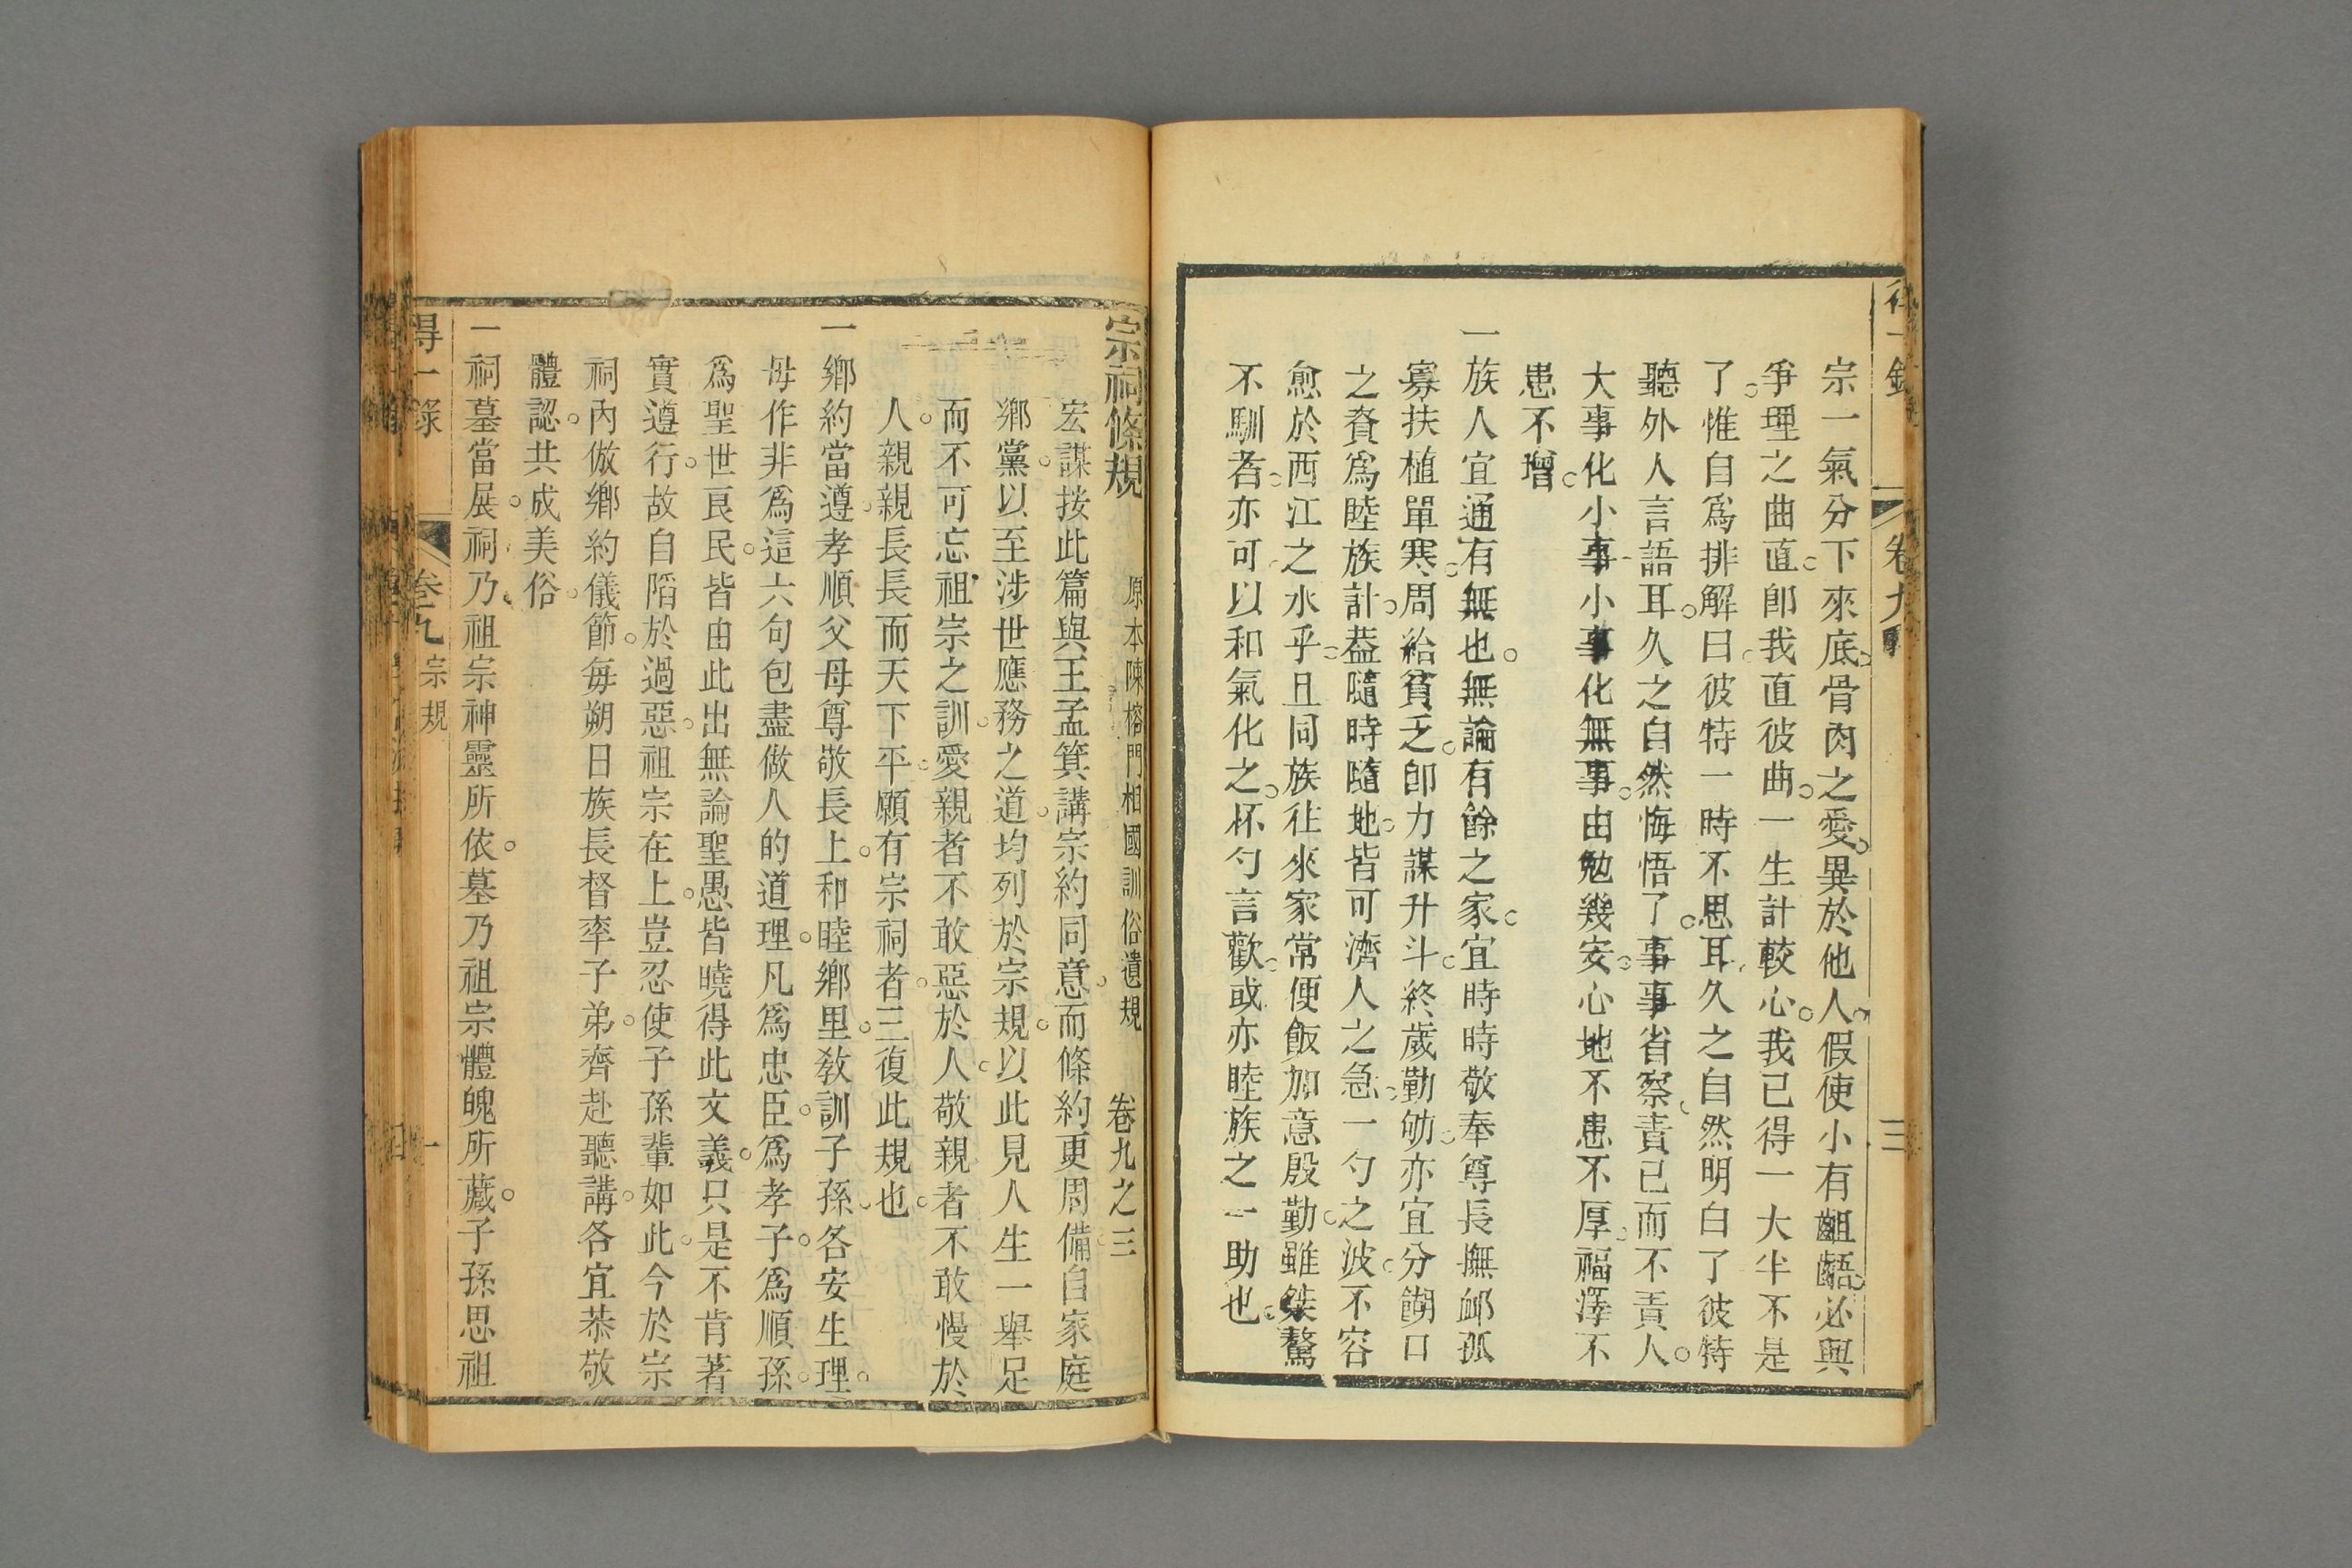 得一錄 卷九 三
宗一氣分下來底骨肉之愛異於他人假使小有齟齬必與
爭理之曲直卽我直彼曲一生計較心我已得一大半不是
了惟自爲排解曰彼特一時不思耳久之自然明白了彼特
聽外人言語耳久之自然悔悟了事事省察責己而不責人
大事化小事小事化無事由勉幾安心地不患不厚福澤不
患不增
一族人宜通有無也無論有餘之家宜時時敬奉尊長撫卹孤
寡扶植單寒周給貧乏卽力謀升斗終歲勤劬亦宜分餬口
之資爲睦族計葢隨時隨地皆可濟人之急一勺之波不容
愈於西江之水乎且同族往來家常便飯加意殷勤雖桀驁
不馴者亦可以和氣化之杯勺言歡或亦睦族之一助也
宗祠條規 原本陳榕門相國訓俗遺規 卷九之三
宏謀按此篇與王孟箕講宗約同意而條約更周備自家庭
鄉黨以至涉世應務之道均列於宗規以此見人生一舉足
而不可忘祖宗之訓愛親者不敢惡於人敬親者不敢慢於
人親親長長而天下平願有宗祠者三復此規也
一鄉約當遵孝順父母尊敬長上和睦鄉里敎訓子孫各安生理
毋作非爲這六句包盡做人的道理凡爲忠臣爲孝子爲順孫
爲聖世良民皆由此出無論聖愚皆曉得此文義只是不肯著
實遵行故自陷於過惡祖宗在上豈忍使子孫輩如此今於宗
祠內倣鄉約儀節每朔日族長督率子弟齊赴聽講各宜恭敬
體認共成美俗
一祠墓當展祠乃祖宗神靈所依墓乃祖宗體魄所藏子孫思祖
得一錄 卷九 宗規 一